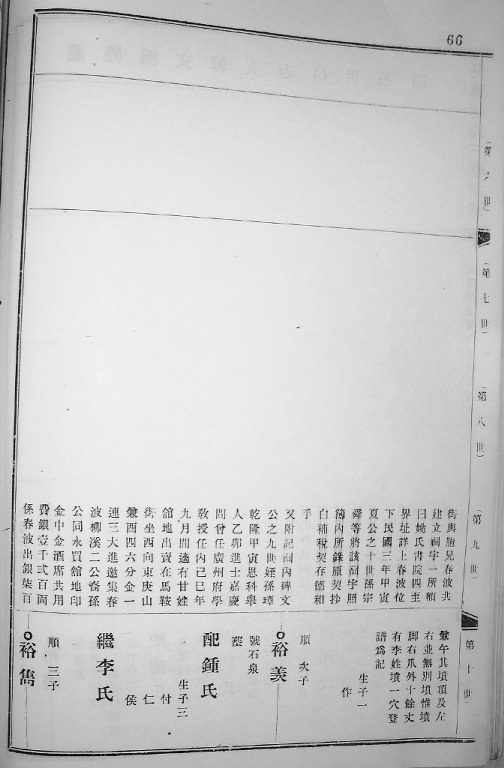 66
(第六世)
(第七世)
(第八世)
(第九世)
(第十世)
街與胞兄春波共
建立祠宇一所額
曰姚氏書院四至
界址詳上春波位
下民國三年甲寅
夏公之十世孫宗
舜等將該祠宇照
簿內所錄原契抄
白補稅契存德和
手
又附記祠內碑文
公之九世姪孫璋
乾隆甲寅恩科舉
人乙卯進士嘉慶
間曾任廣州府學
教授任內己巳年
九月間適有甘姓
舘地出賣在馬鞍
街坐西向東庚山
兼酉四六分金一
連三大進邀集春
波柳溪二公裔孫
公同永買舘地印
金中金酒席共用
費銀壹千弍百兩
係春波出銀柒百
兼午其墳頂及左
右並無別墳惟墳
脚右爪外十餘丈
有李姓墳一穴登
譜爲記
生子一
作
順 次子
裕羨
號石泉
塟
配鍾氏
生子三
付
仁
侯
繼李氏
順 三子
裕雋